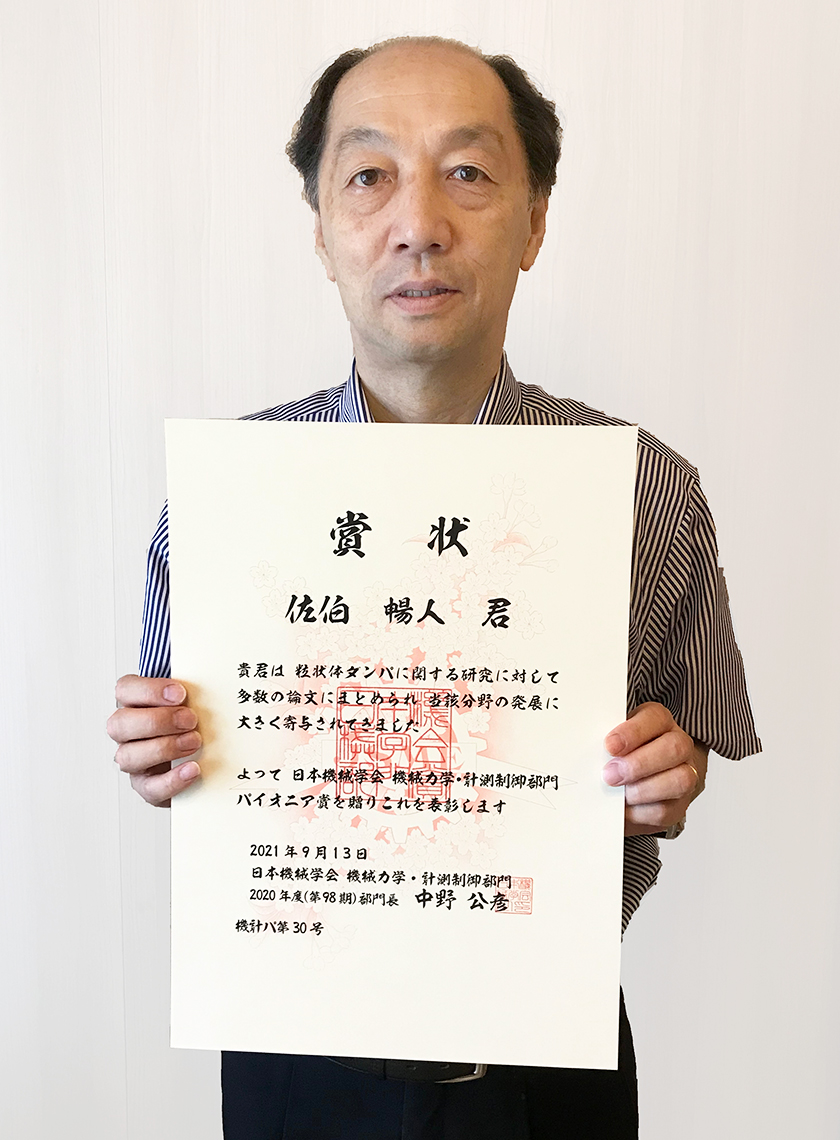 賞状
佐伯 暢人 君
貴君は 粒状体ダンパに関する研究に対して
多数の論文にまとめられ 当該分野の発展に
大きく寄与されてきました
よって 日本機械学会 機械力学・計測制御部門
パイオニア賞を贈りこれを表彰します
2021年9月13日
日本機械学会 機械力学・計測制御部門
2020年度(第98期)部門長 中野 公彦
機計パ第30号